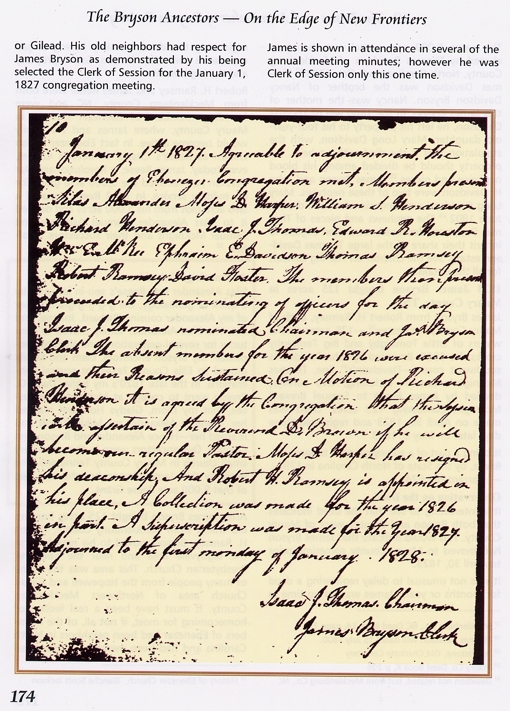 The Bryson Ancestors — On the Edge of New Frontiers
or Gilead. His old neighbors had respect for
James Bryson as demonstrated by his being
selected the Clerk of Session for the January 1,
1827 congregation meeting.
James is shown in attendance in several of the
annual meeting minutes; however he was
Clerk of Session only this one time.
10
January 1th 1827. Agreeable to adjournment, the
members of Ebenezer Congregation met, Members present
Silas Alexander Moses D. Harper. William S. Henderson
Richard Henderson, Isaac J. Thomas, Edward R. Houston
Ephraim E. Davidson Thomas Ramsey
Robert Ramsey David Foster, The members then present
proceeded to the nominating of officers for the day
Isaac J. Thomas nominated Chairman and Bryson
Clerk The absent members for the year 1826 were excused
and their Reasons Sustained, On Motion of Richard
Henderson it is agreed by the Congregation that the
ascertain of the Reverend D. Brown if he will
become our regular Pastor. Moses D. Harper has resigned
his deaconship, And Robert H. Ramsey is appointed in
his place, A Collection was made for the year 1826
in part. A Supscription was made for the Year 1827.
Adjourned to the first monday of January . 1828.
Isaac J. Thomas. Chairman
James Bryson Clerk
174